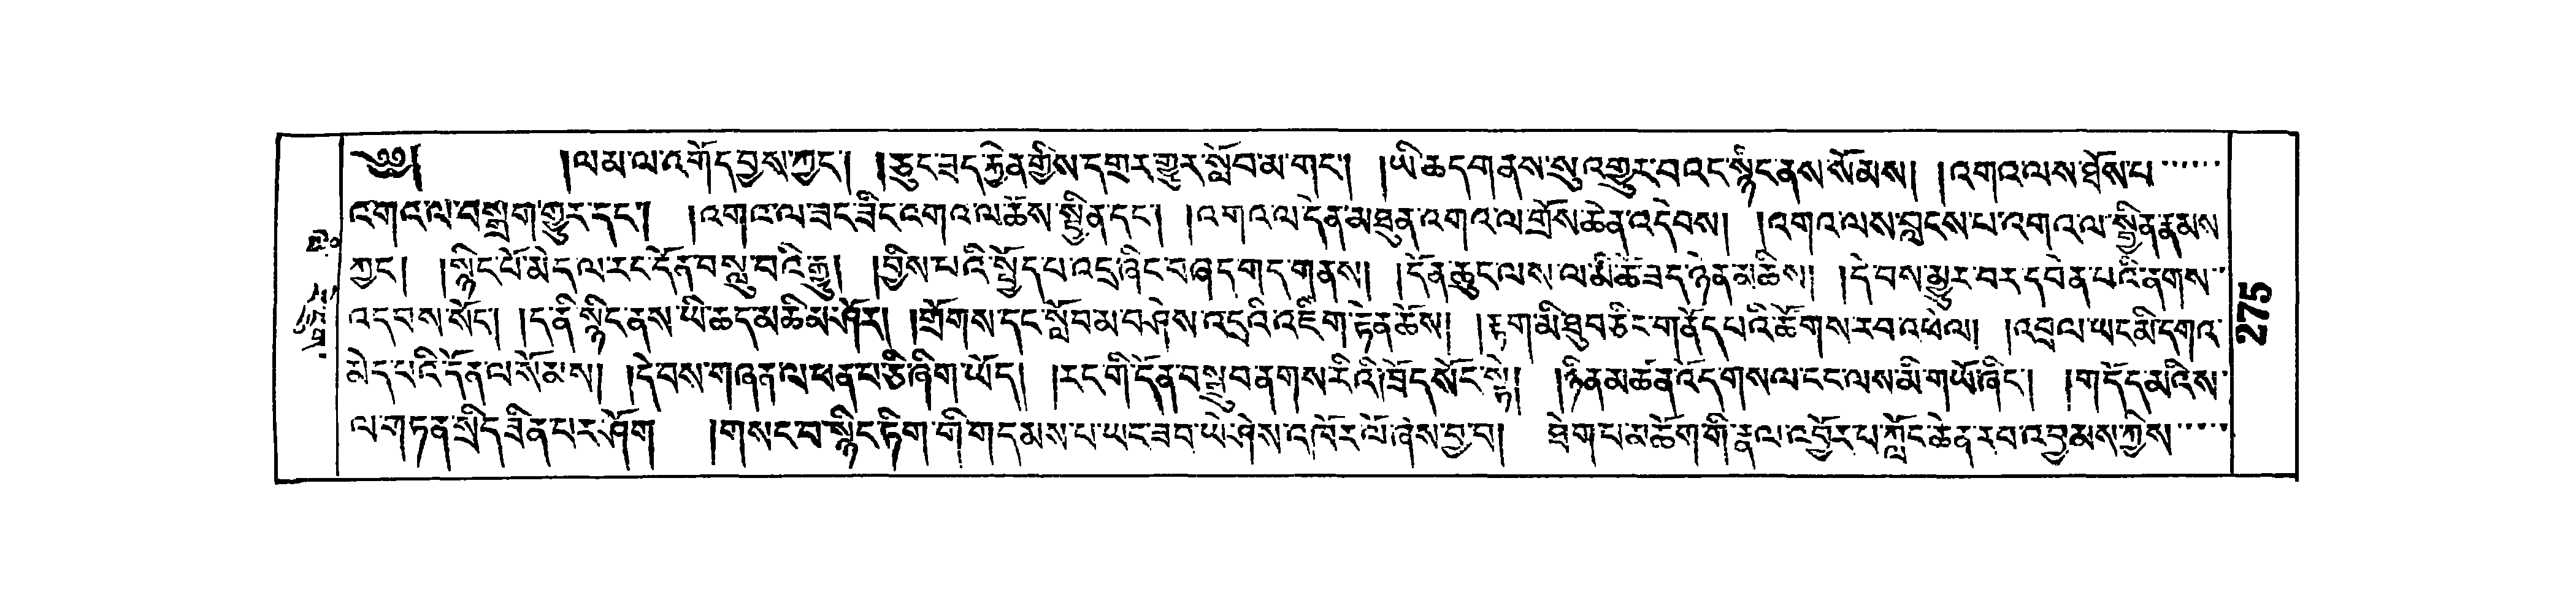 ༄༅། །ལམ་ལ་འགོད་བྱས་ཀྱང་། །ཅུང་ཟད་རྐྱེན་གྱིས་དགྲར་གྱུར་སློབ་མ་གང་། །ཡི་ཆད་གནས་སུ་འགྱུར་བའང་སྙིང་ནས་སོམས། །འགའ་ལས་ཐོས་པ་
འགའ་ལ་བསྒྲག་གྱུར་དང་། །འགའ་ལ་ཟང་ཟིང་འགའ་ལ་ཆོས་སྦྱིན་དང་། །འགའ་ལ་དེན་མཐུན་འགའ་ལ་གྲོས་ཆེན་འདེབས། །འགའ་ལས་བླངས་པ་འགའ་ལ་སྦྱིན་རྣམས་
ཀྱང་། །སྙིང་པོ་མེད་ལ་རང་དོན་བསླུ་བའི་རྒྱུ། །བྱིས་པའི་སྤྱོད་པ་འདྲ་ཞིང་བཞད་གད་གནས། །དོན་ཆུང་ལས་ལ་མི་ཚེ་ཟད་ཉེན་མཆིས། །དེ་བས་མྱུར་བར་དབེན་པའི་ནགས་
འདབས་སོང་། །ད་ནི་སྙིང་ནས་ཡི་ཆད་མཆི་མ་ཤོར། །གྲོགས་དང་སློབ་མ་བཤེས་འདྲའི་འཇིག་རྟེན་ཆོས། །རྟག་མི་ཐུབ་ཅིང་གནོད་པའི་ཚོགས་རབ་འཕེལ། །འབྲལ་ཡང་མི་དགའ་
མེད་པའི་དོན་ལ་སོམས། །དེ་བས་གཞན་ལ་ཕན་པ་ཅི་ཞིག་ཡོད། །རང་གི་དོན་བསྒྲུབ་ནགས་རིའི་ཁྲོད་སོང་སྟེ། །ཉིན་མཚན་འོད་གསལ་ངང་ལས་མི་གཡོ་ཞིང་། །གདོད་མའིས་
ལ་གཏན་སྲིད་ཟིན་པར་ཤོག །གསང་བ་སྙིང་ཏིག་གི་གདམས་པ་ཡང་ཟབ་ཡེ་ཤེས་འཁོར་ལོ་ཞེས་བྱ་བ། ཐེག་པ་མཆོག་གི་རྣལ་འབྱོར་པ་ཀློང་ཆེན་རབ་འབྱམས་ཀྱིས་